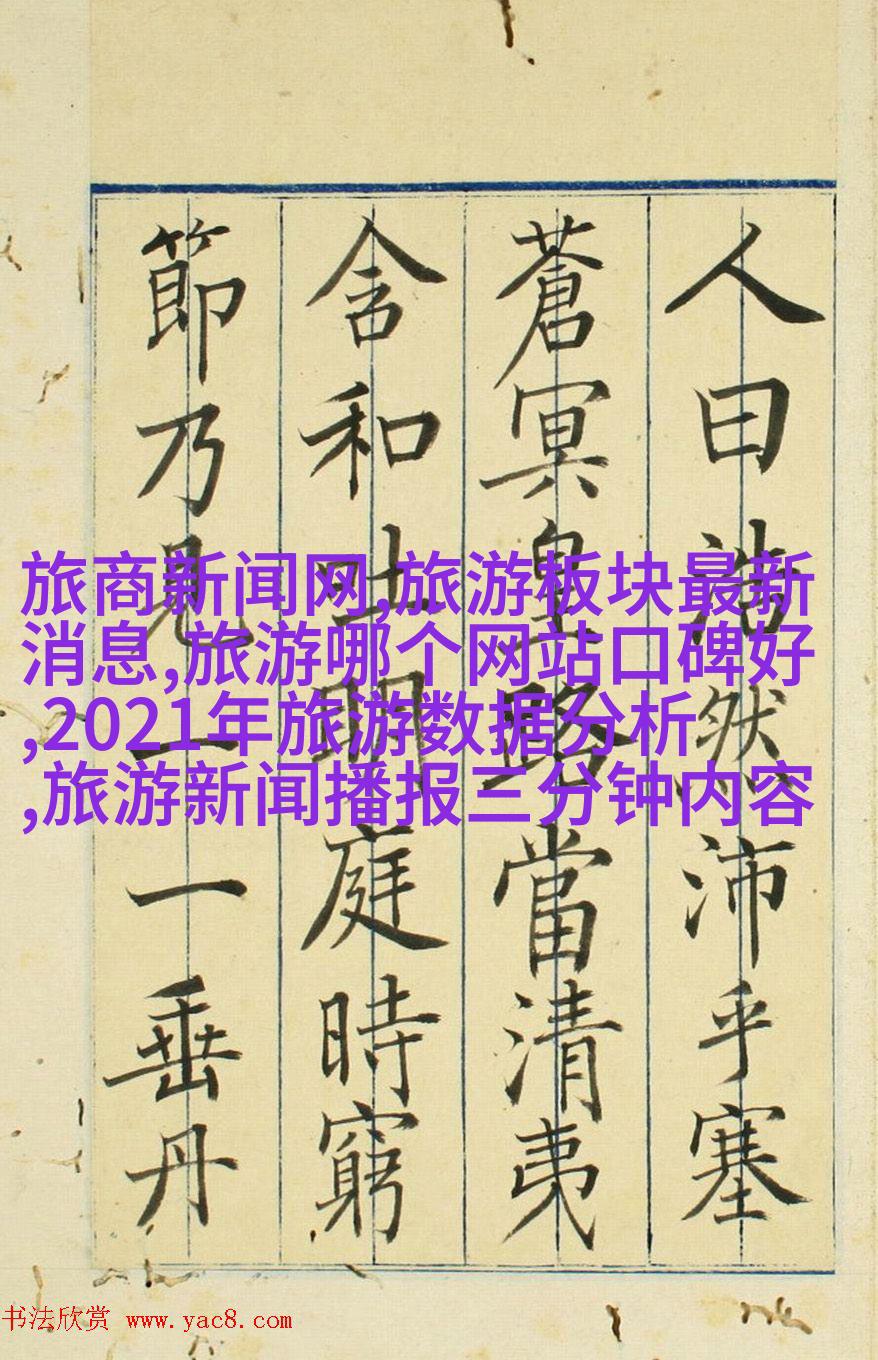 人曰浩然沛乎塞
蒼冥皇路當清夷
含和吐明庭時窮
節乃見一一垂丹
旅商新闻网,旅游板块最新
消息,旅游哪个网站口碑好
,2021年旅游数据分析
,旅游新闻播报三分钟内容
书法欣赏 www.yac8.com